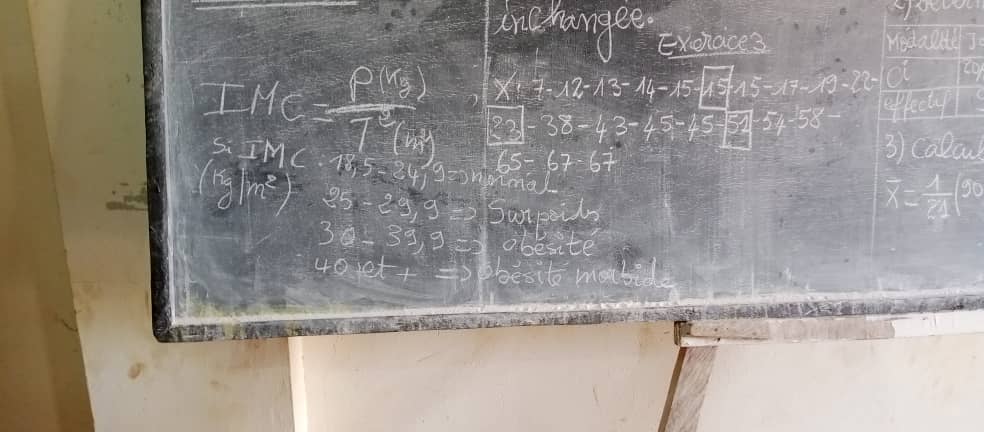 inchangée.
Exercice 3
IMC = P(Kg) / T² (m²)
Si IMC : 18,5 - 24,9 => normal
(Kg/m²)
25 - 29,9 => Surpoids
30 - 39,9 => obésité
40 et + => obésité morbide
, X: 7-12-13-14-15-15-15-17-19-22-
23-38-43-45-45-51-54-58-
65-67-67
Modalité
Ci
effectif
3) Calcul
X̄ = 1/21 (90